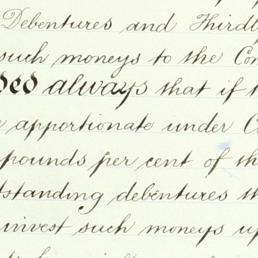 Debentures and Thirdl
such moneys to the Con
ded always that if t
apportionate under C
pounds per cent of th
tstanding debentures th
invest such moneys up